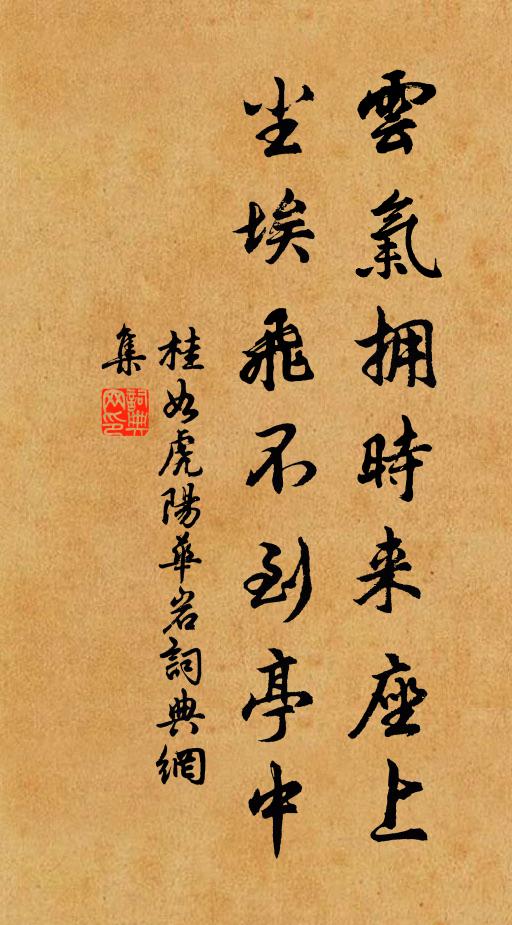 雲氣拥時来座上
坐埃飛不到亭中
桂如虎陽華岩詞典網
集
詞典網印